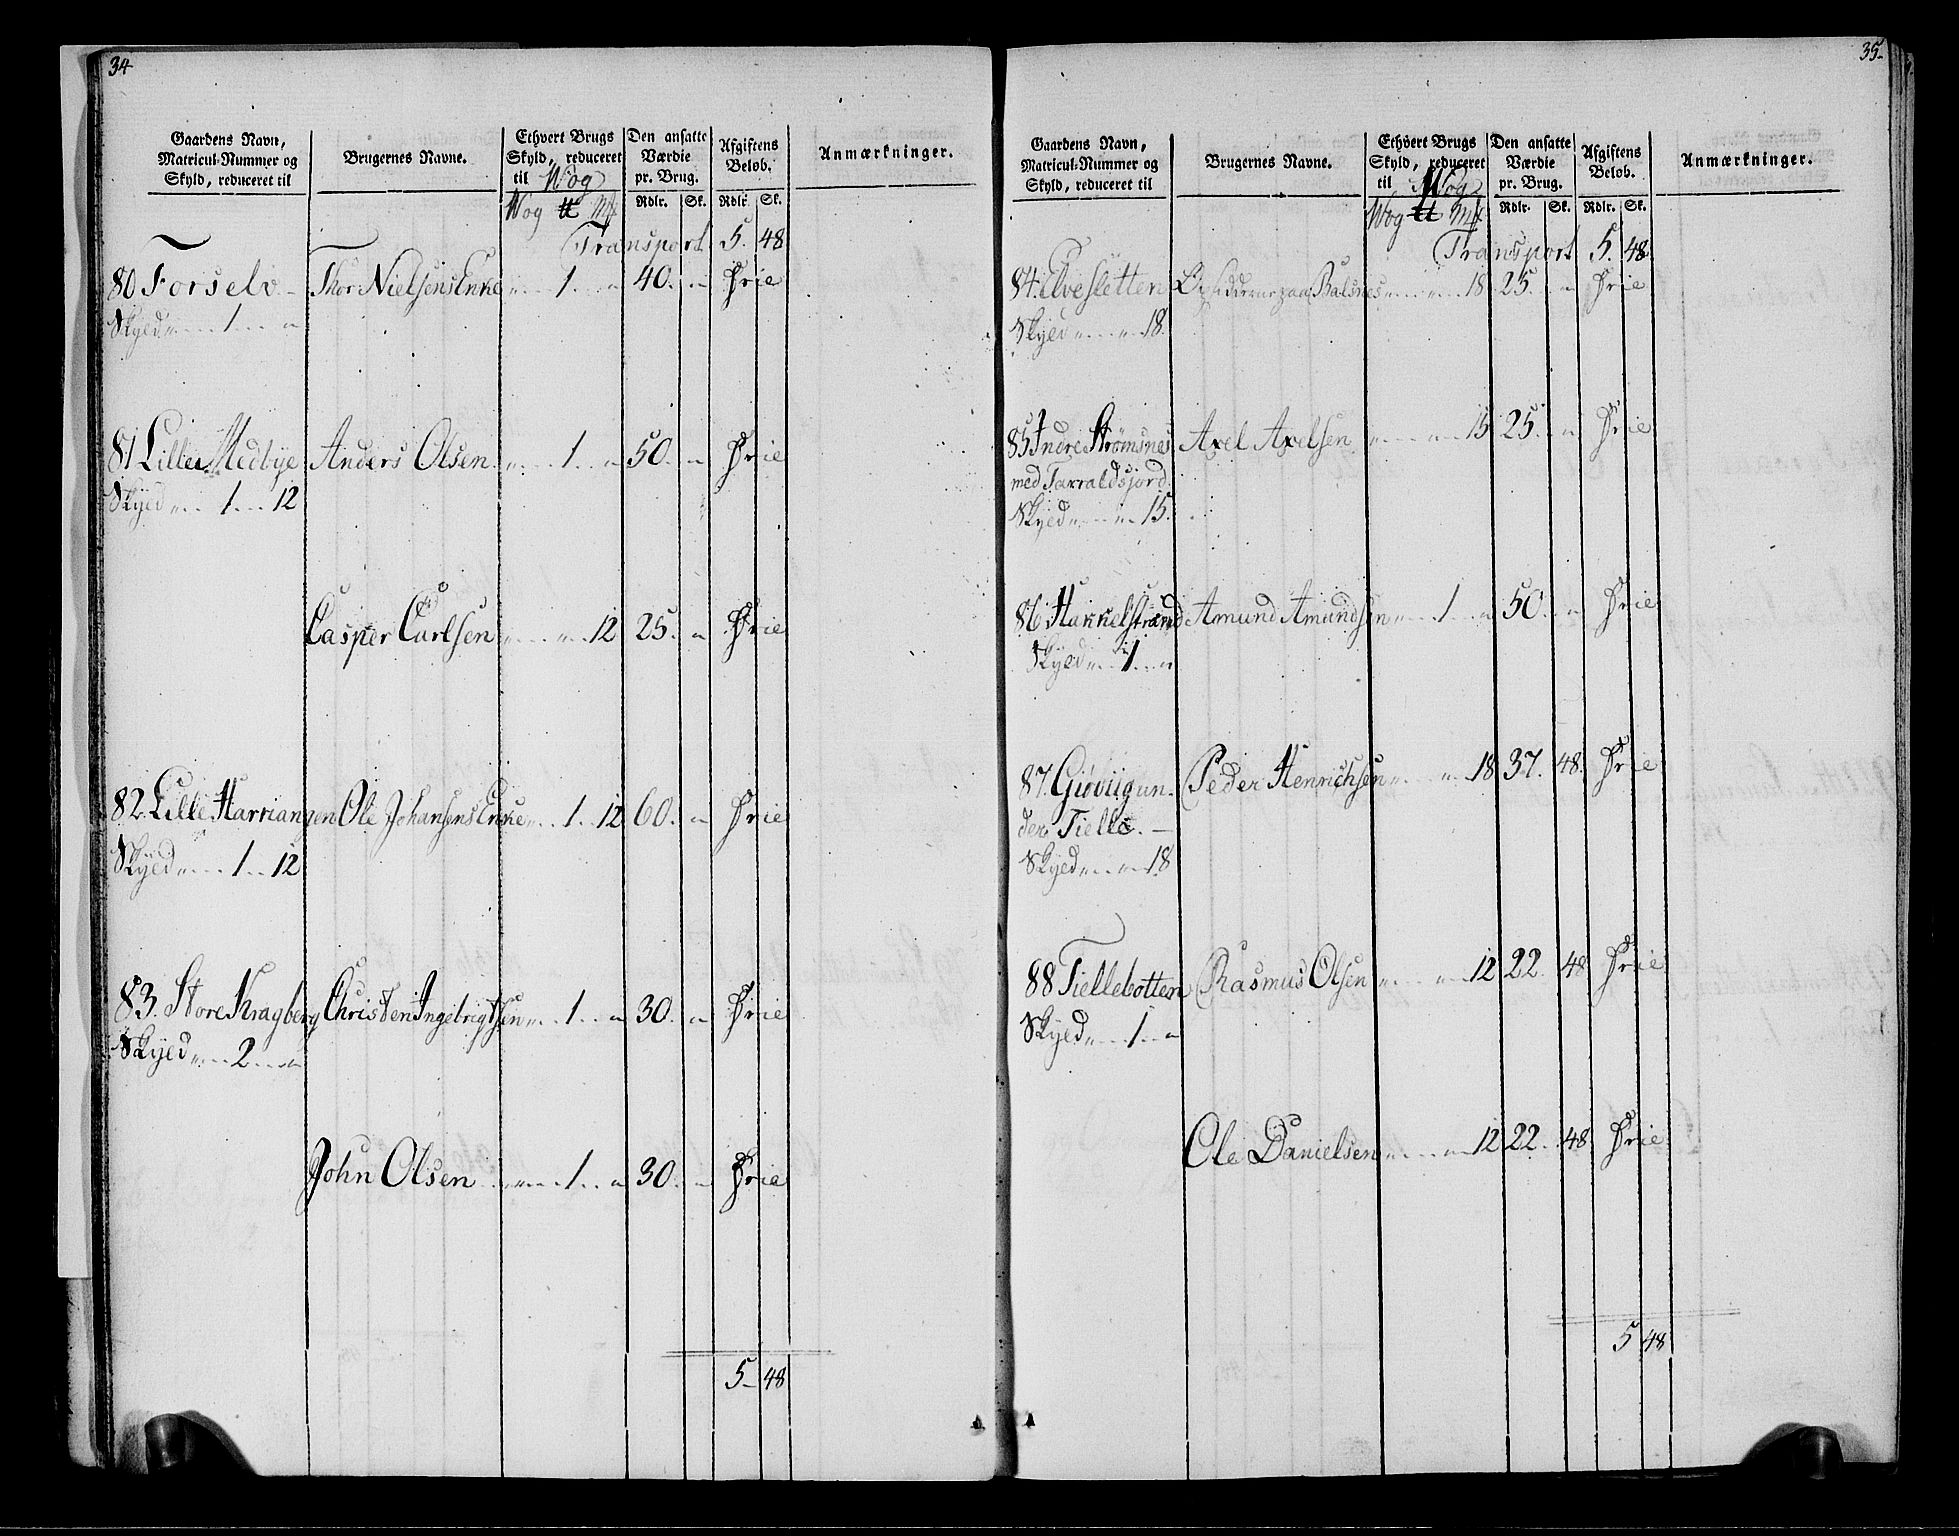 34
Gaardens Navn, Matricul-Nummer og Skyld, reduceret til
Brugernes Navne.
Ethvert Brugs Skyld, reduceret til Wog
Den ansatte Værdie pr. Brug.
Afgiftens Beløb.
Anmærkninger.
Wog ℔ Mk Rdlr. Sk. Rdlr. Sk.
Transport 5. 48
80 Forselv - Thor Nielsens Enke „ 1. „ 40. „ Frie
Skyld „ 1 „
81 Lille Medbye Anders Olsen „ 1. „ 50. „ Frie
Skyld „ 1. 12
Casper Carlsen „ „ 12 25. „ Frie
82. Lille Harriangen Ole Johansens Enke „ 1. 12 60. „ Frie
Skyld „ 1. 12
83. Store Kragberg Christen Ingebrigtsen „ 1. „ 30. „ Frie
Skyld „ 2. „
John Olsen „ 1. „ 30. „ Frie
5 - 48
35.
Gaardens Navn, Matricul-Nummer og Skyld, reduceret til
Brugernes Navne.
Ethvert Brugs Skyld, reduceret til Wog
Den ansatte Værdie pr. Brug.
Afgiftens Beløb.
Anmærkninger.
Wog ℔ Mk Rdlr. Sk. Rdlr. Sk.
Transport 5. 48
84. Elvesletten Opsidderne paa Balsnes „ „ 18 25. „ Frie
Skyld „ „ 18.
85 Indre Strømsnes Axel Axelsen „ „ 15 25. „ Frie
med Tarraldsjord
Skyld „ „ 15.
86 Hankelstrand Amund Amundsen „ 1. „ 50. „ Frie
Skyld „ 1. „
87. Giøviig un- Peder Henrichsen „ „ 18 37. 48. Frie
der Tielle. -
Skyld „ „ 18
88 Tiellebotten Rasmus Olsen „ „ 12 22. 48 Frie
Skyld „ 1. „
Ole Danielsen „ „ 12 22. 48 Frie
5 48